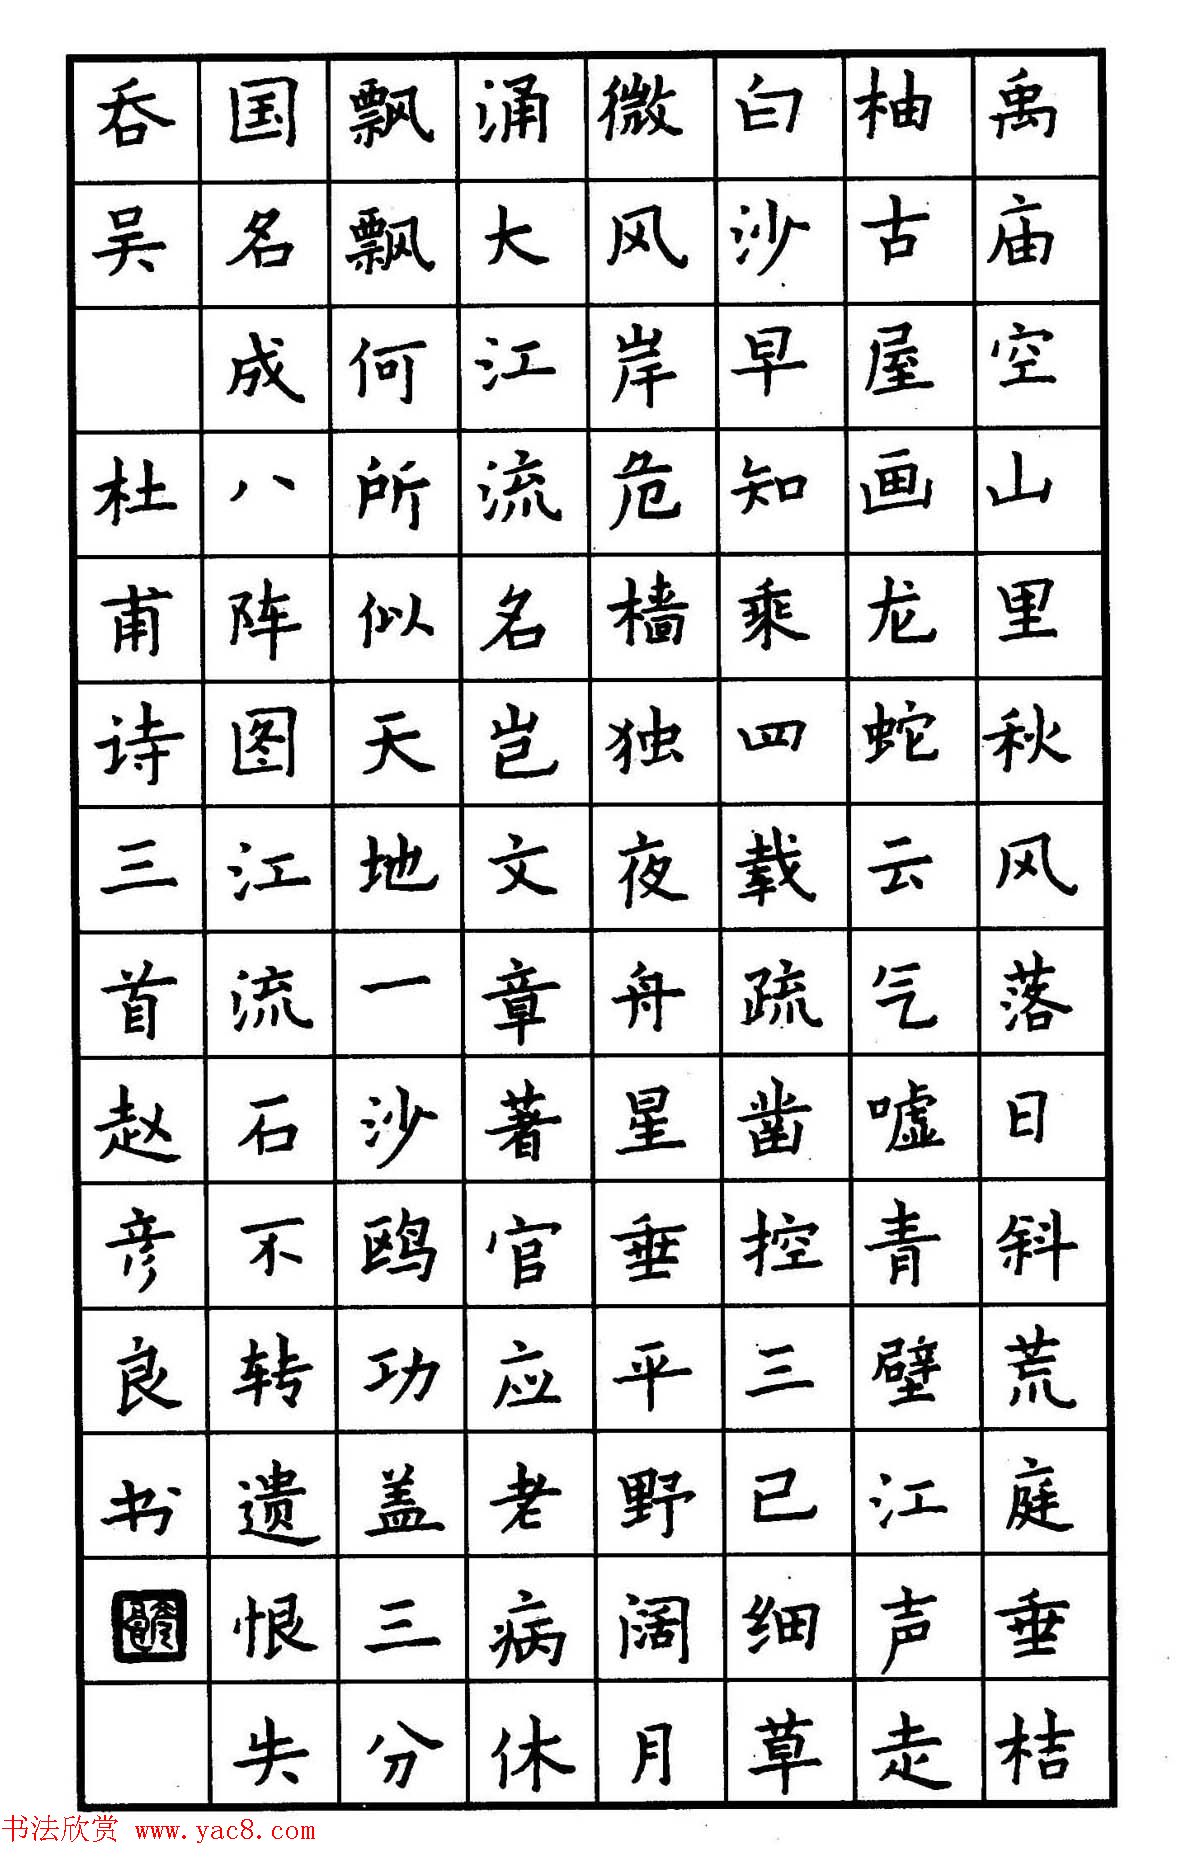 禹庙空山里秋风落日斜荒庭垂桔
柚古屋画龙蛇云气嘘青壁江声走
白沙早知乘四载疏凿控三已细草
微风岸危樯独夜舟星垂平野阔月
涌大江流名岂文章著官应老病休
飘飘何所似天地一沙鸥功盖三分
国名成八阵图江流石不转遗恨失
吞吴 杜甫诗三首赵彦良书
书法欣赏 www.yac8.com